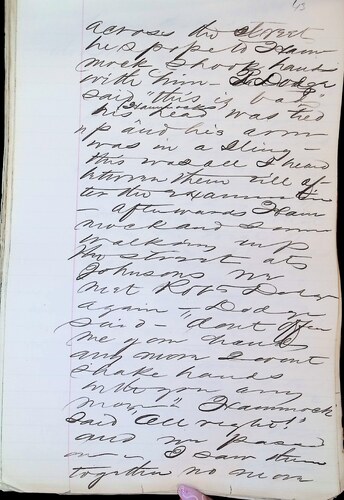 13
across the street
he spoke to Ham
mock shook hands
with him - Rob Dodge
said "this is bad
Hammock's
his head was tied
up and his arm
was in a sling -
this was all I heard
between them till af-
ter the examination
- afterwards Ham
mock and I were
walking up
the street at
Johnsons we
met Rob Dodge
again - Dodge
said - "dont offer
me your hand
any more I wont
shake hands
with you any
more -" Hammock
said "All right!"
and we passed
on - I saw them
together no more